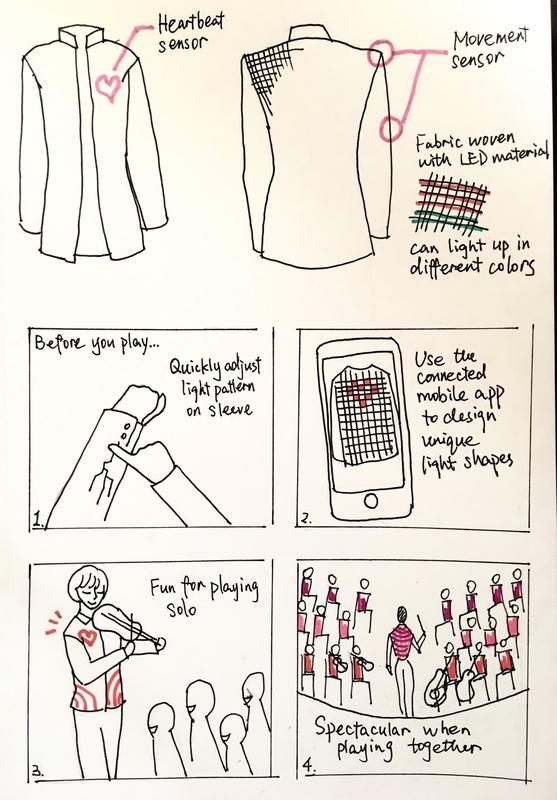 Heartbeat
sensor
Movement
sensor
Fabric woven
with LED material
can light up in
different colors
Before you play...
Quickly adjust
light pattern
on sleeve
1.
Use the
connected
mobile app
to design
unique
light shapes
2.
Fun for playing
solo
3.
Spectacular when
playing together
4.